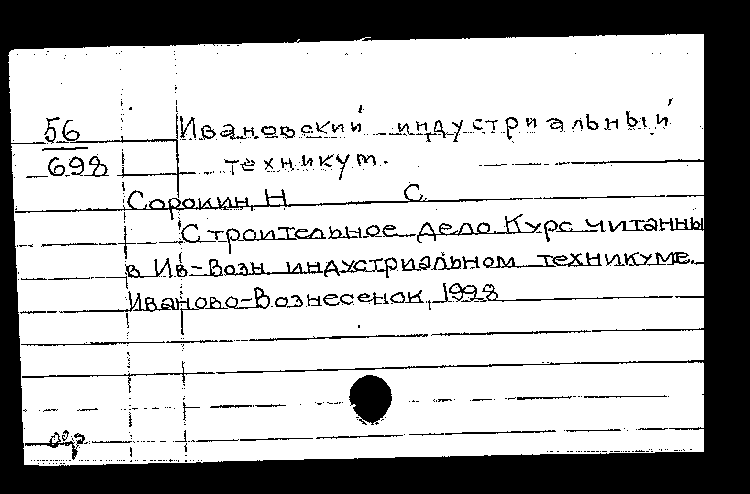 56
698
Ивановский индустриальный
техникум.
Сорокин, Н С.
Строительное дело. Курс читанны
в Ив-Возн. индустриальном техникуме.
Иваново-Вознесенск, 1928